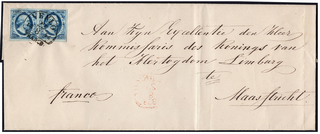 Aan Zyn Excellentie den Heer
Kommissaris des Konings van
het Hertogdom Limburg
te
franco
Maastricht